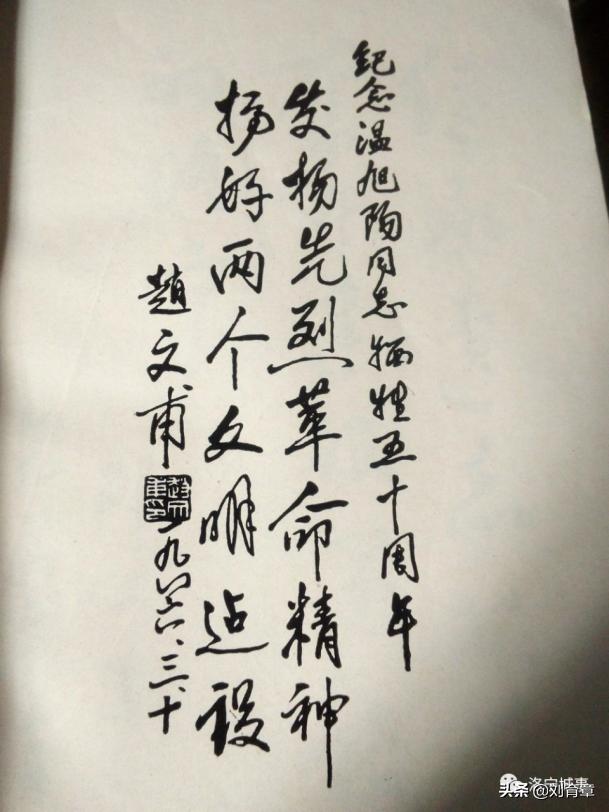 纪念温旭阳同志牺牲五十周年
发扬先烈革命精神
搞好两个文明建设
趙文甫
一九八六、三、十
洛宁城事
头条 @刘育章